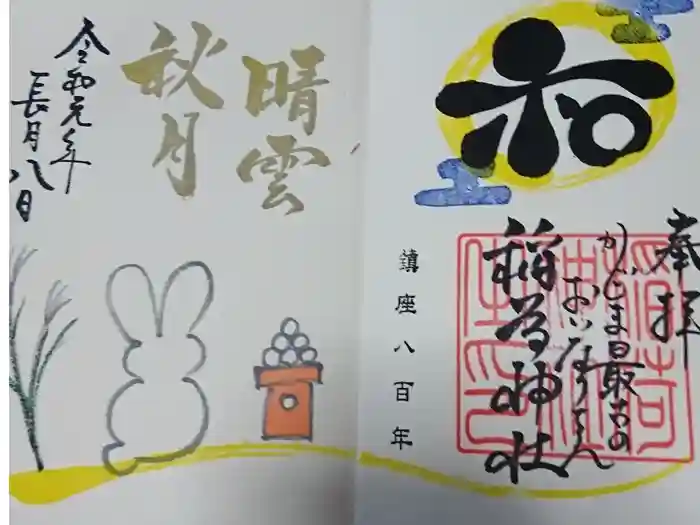 奉拝
かごしま最古の
おいなりさん
稲荷神社
鎮座八百年
和
晴雲
秋月
令和元年
長月八日